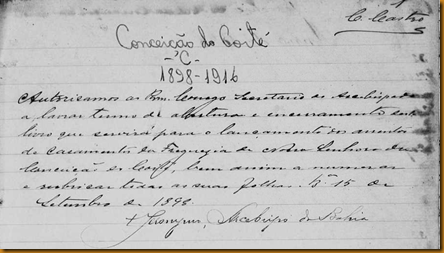 C. Castro
Conceição do Coité
- C -
1898-1916
Autorisamos ao Rvm. Conego Secretario do Arcebispado
a lavrar termo de abertura e encerramento deste
livro que servirá para o lançamento dos assentos
de casamentos da Freguezia de Nossa Senhora da
Conceição do Coité, bem assim a numerar
e rubricar todas as suas folhas. 15 de
Setembro de 1898.
+ Jeronymo, Arcebispo da Bahia